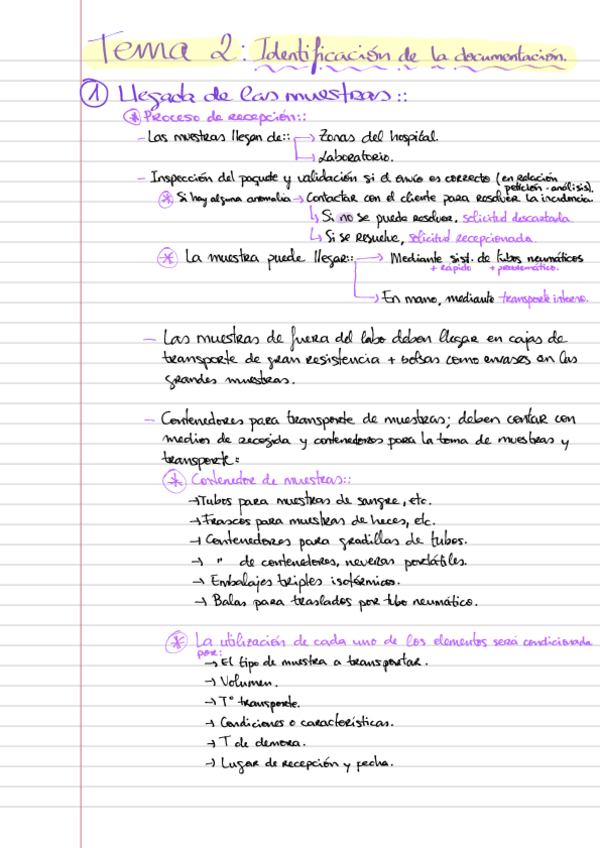 Tema 2: Identificación de la documentación.
① Llegada de las muestras::
* Proceso de recepción::
- Las muestras llegan de:: → Zonas del hospital.
→ Laboratorio.
- Inspección del paquete y validación si el envío es correcto (en relación
petición - análisis).
* Si hay alguna anomalía → Contactar con el cliente para resolver la incidencia.
↳ Si no se puede resolver, solicitud descartada
↳ Si se resuelve, solicitud recepcionada.
* La muestra puede llegar:: → Mediante sist. de tubos neumáticos
+ rápido + problemático.
→ En mano, mediante transporte interno.
- Las muestras de fuera del labo deben llegar en cajas de
transporte de gran resistencia + bolsas como envases en las
grandes muestras.
- Contenedores para transporte de muestras; deben contar con
medios de recogida y contenedores para la toma de muestras y
transporte:
* Contenedor de muestras::
→ Tubos para muestras de sangre, etc.
→ Frascos para muestras de heces, etc.
→ Contenedores para gradillas de tubos.
→ " de contenedores, neveras portátiles.
→ Embalajes triples isotérmicos.
→ Balas para traslados por tubo neumático.
* La utilización de cada uno de los elementos será condicionada
por:
→ El tipo de muestra a transportar.
→ Volumen.
→ Tº transporte.
→ Condiciones o características.
→ T de demora.
→ Lugar de recepción y fecha.